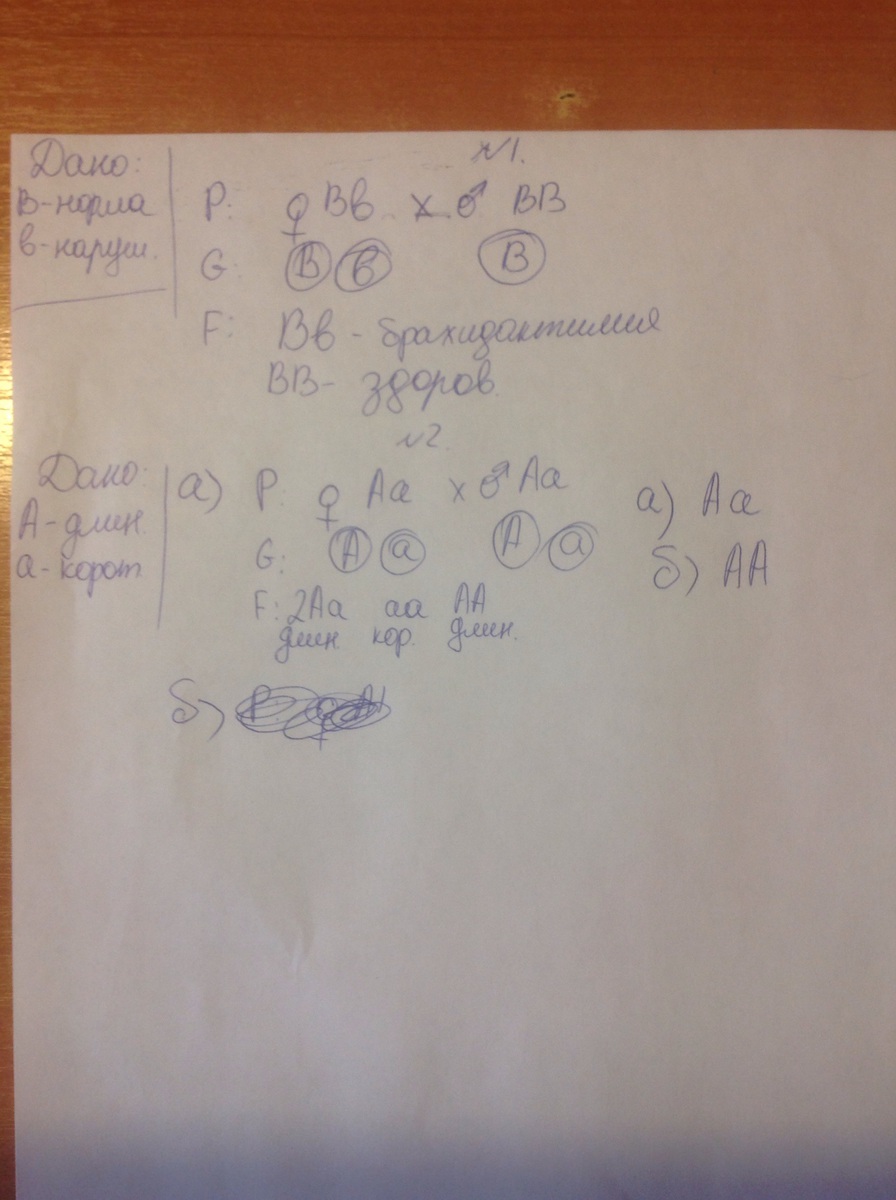 №1.
Дано:
В-норма
в-наруш.
P: ♀ Вв х ♂ ВВ
G: В в В
F: Вв - брахидактилия
ВВ- здоров.
№2.
Дано:
А-длин.
а-корот
а) P: ♀ Аа х ♂ Аа
G: А а А а
F: 2Аа аа АА
длин кор. длин.
а) Аа
б) АА
б)